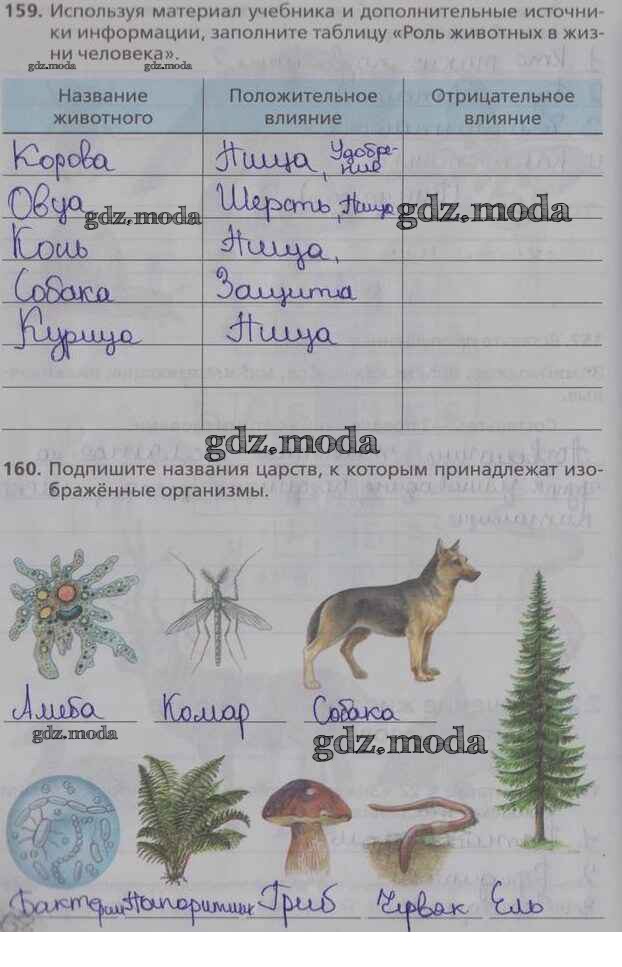 159. Используя материал учебника и дополнительные источни-
ки информации, заполните таблицу «Роль животных в жиз-
ни человека».
gdz.moda gdz.moda
Название животного Положительное влияние Отрицательное влияние
Корова Пища, Удобре-
ние
Овца Шерсть, Пища
gdz.moda gdz.moda
Конь Пища,
Собака Защита
Курица Пища
gdz.moda
160. Подпишите названия царств, к которым принадлежат изо-
бражённые организмы.
Амеба Комар Собака
gdz.moda gdz.moda
Бактерии Папоритник Гриб Червяк Ель